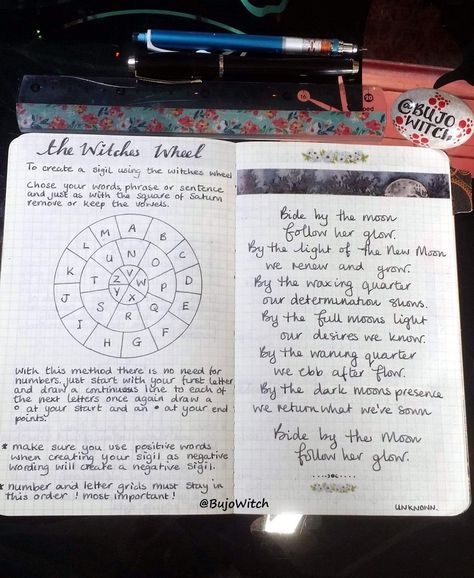 @BUJO
WITCH
the Witches Wheel
To create a sigil using the witches wheel
Chose your words, phrase or sentence
and just as with the square of Saturn
remove or keep the vowels.
A B C D E F G H I J K L M
N O P Q R S T U
V W X Y Z
With this method there is no need for
numbers. just start with your first letter
and draw a continuous line to each of
the next letters once again draw a
o at your start and an o at your end
points.
* make sure you use positive words
when creating your sigil as negative
wording will create a negative sigil.
* number and letter grids must stay in
this order! most important!
@BujoWitch
Bide by the moon
follow her glow.
By the light of the New Moon
we renew and grow.
By the waxing quarter
our determination shows.
By the full moons light
our desires we know.
By the waning quarter
we ebb after flow.
By the dark moons presence
we return what we've sown
Bide by the Moon
follow her glow.
UNKNOWN.